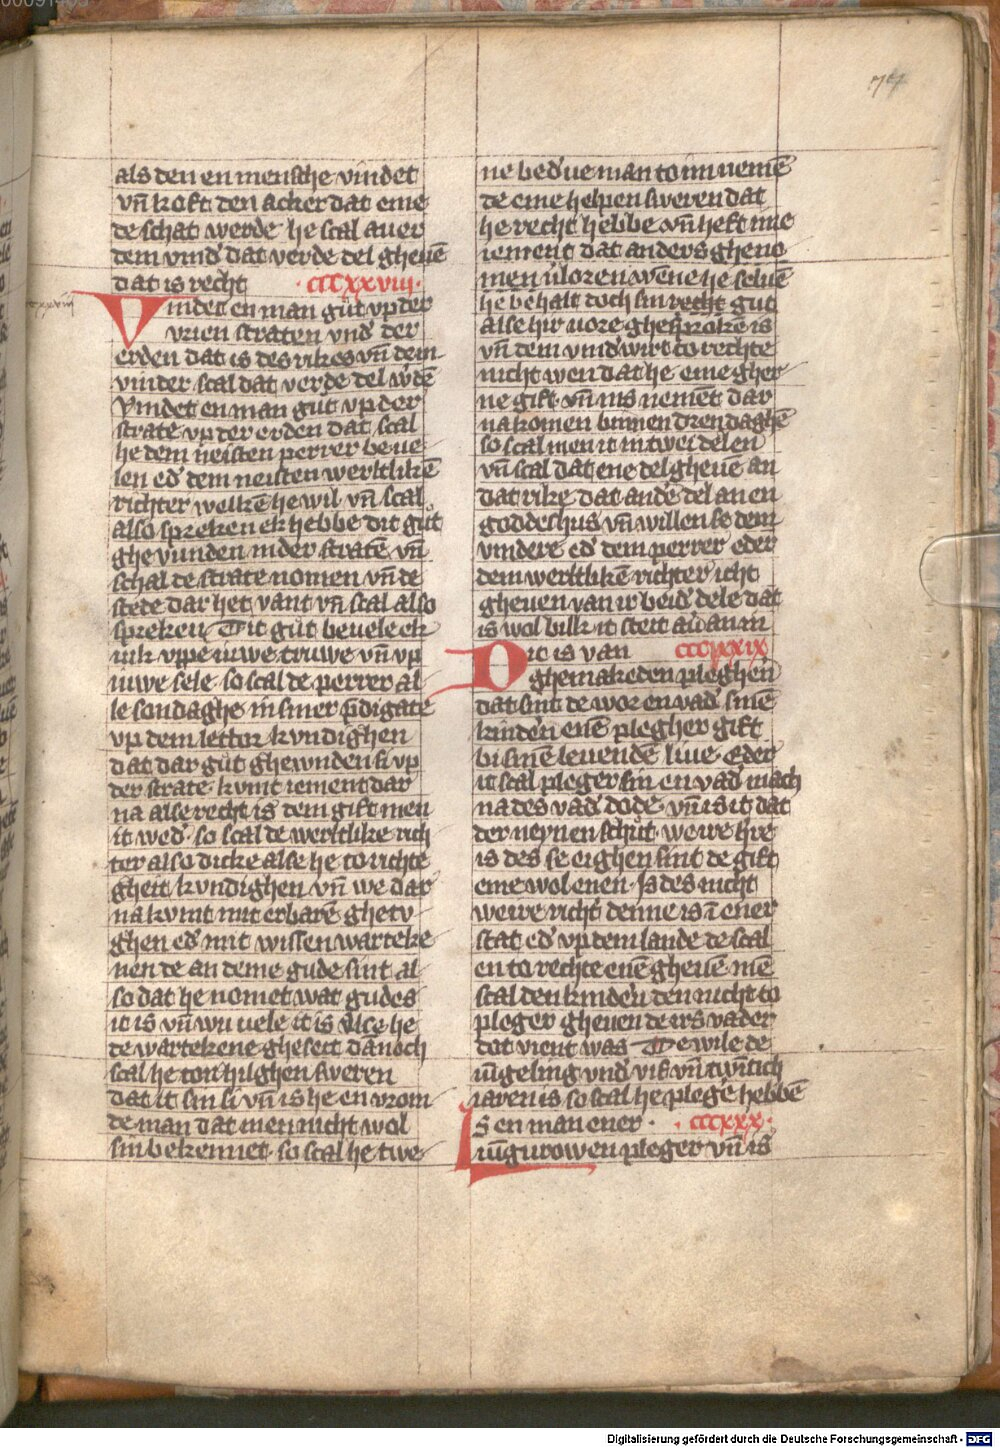 als den en mensche vindet
vn̄ koft den acker dat eme
de schat werde he scal auer
dem vind' dat verde del gheuē
dat is recht · cccxxviii ·
Vindet en man gůt vp der
vrien straten vnd' der
erden dat is des rikes vn̄ dem
vinder scal dat verde del w'dē
Vindet en man gůt vp der
strate vp der erden dat scal
he dem neisten perrer beue
len ed' dem neisten werltlikē
richter welkē he wil vn̄ scal
also spreken ek hebbe dit gůt
ghe vunden in der stratē vn̄
schal de strate nomen vn̄ de
stede dar het vant vn̄ scal also
spreken Dit gůt beuele ek
iuk vppe iuwe truwe vn̄ vp
iuwe sele · so scal de perrer al
le sondaghe in siner p̄digate
vp dem lettor kvndighen
dat dar gůt ghewnden si vp
der strate · kvmt iement dar
na alse recht is dem gift men
it wed' · so scal de werltlike rich
ter also dicke alse he to richte
gheit kvndighen vn̄ we dar
na kvmt mit erbarē ghetv
ghen ed' mit wissen warteke
nen de an deme gude sint al
so dat he nomet wat gudes
it is vn̄ wu uele it is Alse he
de wartekene gheseit dānoch
scal he ton hilghen sweren
dat it sin si vn̄ is he en vrom
de man dat men nicht wol
sin bekennet · so scal he twe
ne bed'ue man to im nemē
de eme helpen sweren dat
he recht hebbe vn̄ heft me
iement dat anders gheno
men v̓loren wēne he seluē
he behalt doch sin recht gut
alse hir uore ghesprokē is
vn̄ dem vind' wirt to rechte
nicht wen dat he eme gher
ne gift vn̄ nis nemēt dar
na komen binnen dren daghē
so scal men it in twei delen
vn̄ scal dat ene del gheuē an
dat rike dat and'e del an en
goddeshus vn̄ willen se dem
vindere ed' dem perrer eder
dem werltlikē richter icht
gheuen van ir beid' dele dat
is wol bilk it steit an
Dit is van cccxxix
ghemakeden pleghen
dat sint de wor en vad' sinē
kinden enē plegher gift
bi sinē leuendē liue · Eder
it scal pleger sin en vad' mach
na des vad' dode · vn̄ is it dat
der neynen schůt · we ire h're
is des se eighen sint de gift
eme wol enen · Is des nicht
we ire richt' denne is ī ener
stat ed' vp dem lande de scal
en to rechte enē gheuē mē
scal den kinden den nicht to
pleger gheuen de irs vader
dot vient was De wile de
iūgeling vnd' vif vn̄ twītich
iaren is so scal he plegē hebbē
Is en man ener · · cccxxx ·
iūgurowen pleger vn̄ is
Digitalisierung gefördert durch die Deutsche Forschungsgemeinschaft - DFG